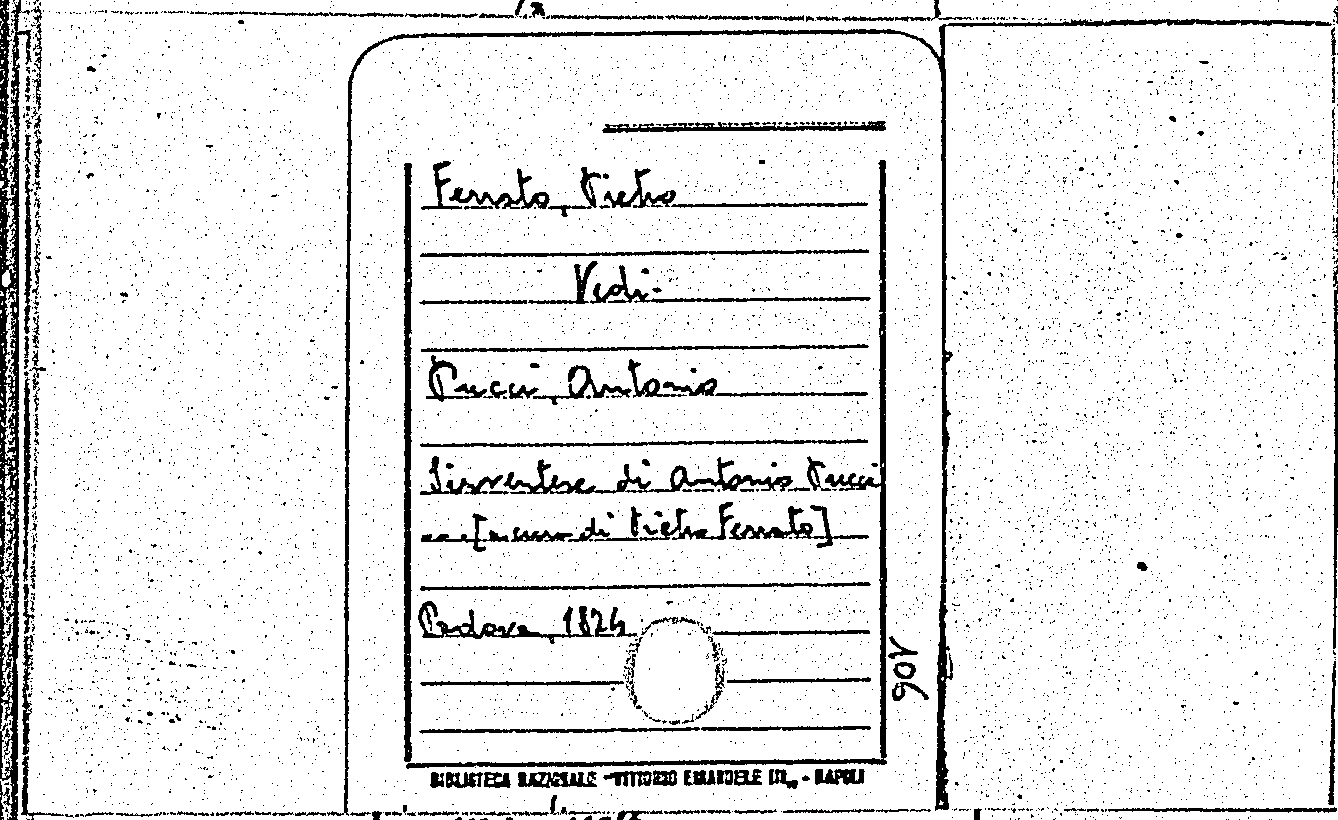 Ferrato, Pietro
Vedi:
Pucci, Antonio
Sirventese di Antonio Pucci
... [a cura di Pietro Ferrato]
Padova, 1824
106
BIBLIOTECA NAZIONALE "VITTORIO EMANUELE III" - NAPOLI